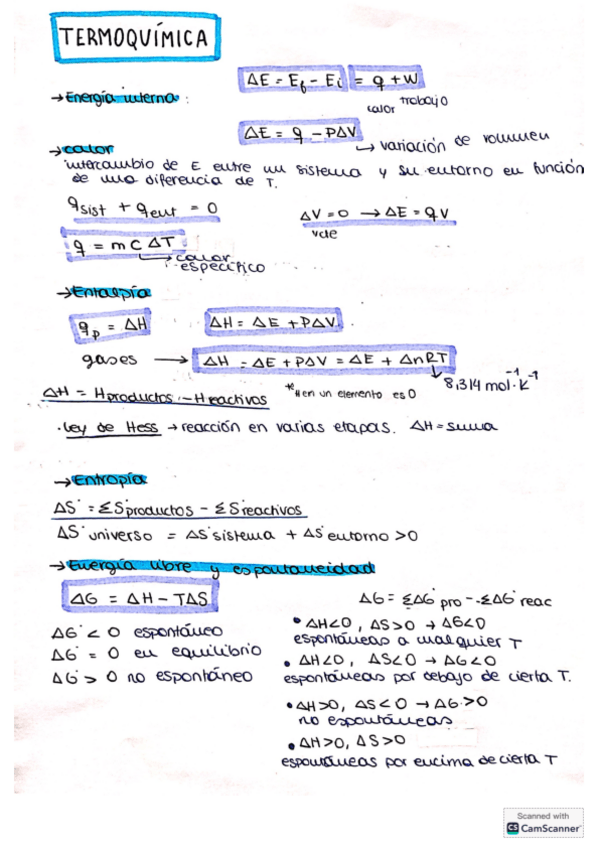 TERMOQUÍMICA
→ Energía interna:
ΔE = Ef - Ei = q + W
calor trabajo
ΔE = q - PΔV
↳ variación de volumen
→ calor
intercambio de E entre un sistema y su entorno en función
de una diferencia de T.
qsist + qent = 0
ΔV = 0 → ΔE = qv
vcte
q = m c ΔT
↳ calor específico
→ Entalpía
qp = ΔH
ΔH = ΔE + PΔV
gases → ΔH = ΔE + PΔV = ΔE + ΔnRT
8,314 mol⁻¹·K⁻¹
ΔH = Hproductos - Hreactivos
*H en un elemento es 0
· Ley de Hess → reacción en varias etapas. ΔH = suma
→ Entropía
ΔS° = ΣS°productos - ΣS°reactivos
ΔS° universo = ΔS° sistema + ΔS° entorno > 0
→ Energía libre y espontaneidad
ΔG = ΔH - TΔS
ΔG° < 0 espontáneo
ΔG° = 0 en equilibrio
ΔG° > 0 no espontáneo
ΔG = ΣΔG° pro - ΣΔG° reac
• ΔH<0, ΔS>0 → ΔG<0
espontáneas a cualquier T
• ΔH<0, ΔS<0 → ΔG<0
espontáneas por debajo de cierta T.
• ΔH>0, ΔS<0 → ΔG>0
no espontáneas
• ΔH>0, ΔS>0
espontáneas por encima de cierta T
Scanned with
CS CamScanner